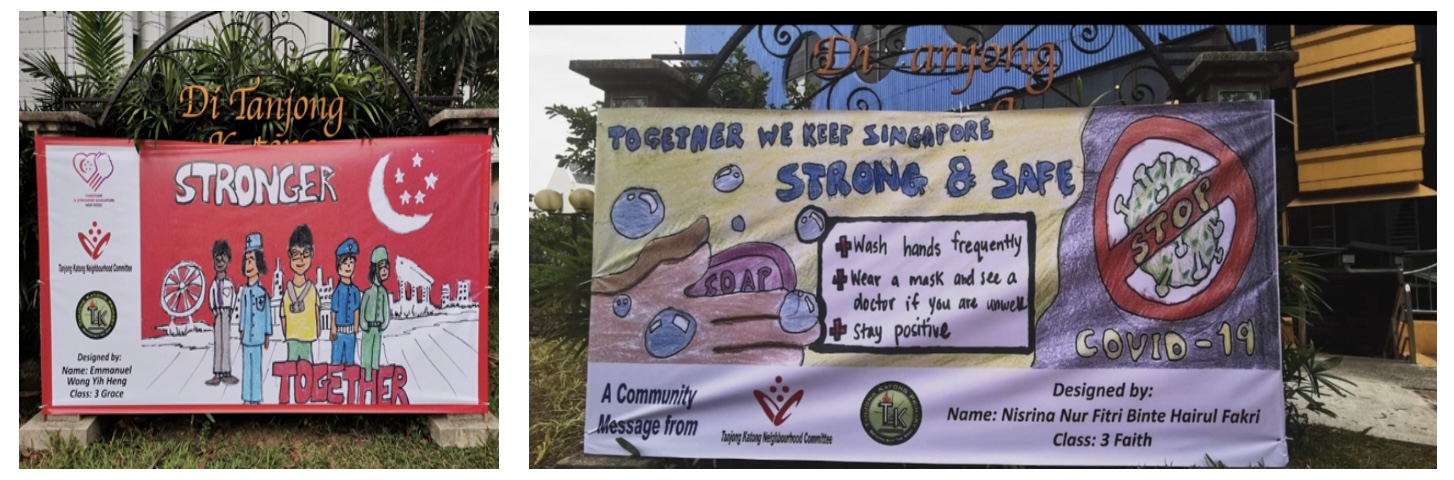 Di Tanjong
STRONGER
Tanjong Katong Neighbourhood Committee
TK
Designed by:
Name: Emmanuel
Wong Yih Heng
Class: 3 Grace
TOGETHER
Di anjong
TOGETHER WE KEEP SINGAPORE
STRONG & SAFE
SOAP
Wash hands frequently
Wear a mask and see a
doctor if you are unwell
Stay positive
STOP
COVID-19
A Community
Message from
Tanjong Katong Neighbourhood Committee
TK
Designed by:
Name: Nisrina Nur Fitri Binte Hairul Fakri
Class: 3 Faith